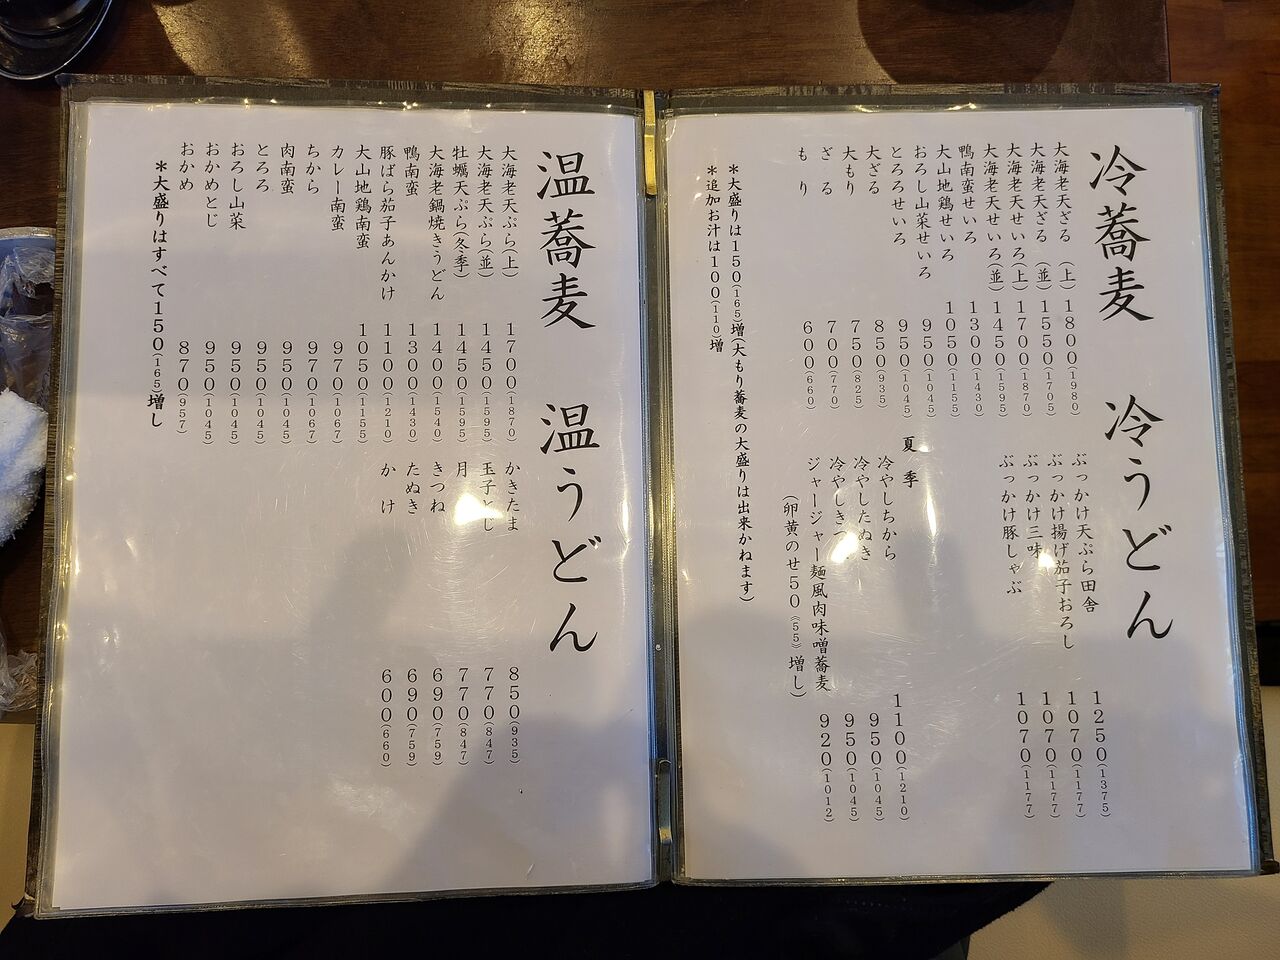 冷蕎麦　冷うどん
大海老天ざる（上）1800(1980)
大海老天ざる（並）1550(1705)
大海老天せいろ(上)1700(1870)
大海老天せいろ(並)1450(1595)
鴨南蛮せいろ 1300(1430)
大山地鶏せいろ 1050(1155)
おろし山菜せいろ 950(1045)
とろろせいろ 950(1045)
大ざる 850(935)
大もり 750(825)
ざる 700(770)
もり 600(660)
＊大盛りは150(165)増(大もり蕎麦の大盛りは出来かねます)
＊追加お汁は100(110)増
ぶっかけ天ぷら田舎 1250(1375)
ぶっかけ揚げ茄子おろし 1070(1177)
ぶっかけ三味 1070(1177)
ぶっかけ豚しゃぶ 1070(1177)
夏季
冷やしちから 1100(1210)
冷やしたぬき 950(1045)
冷やしきつ 950(1045)
ジャージャー麺風肉味噌蕎麦 920(1012)
(卵黄のせ50(55)増し)
温蕎麦　温うどん
大海老天ぷら(上) 1700(1870)
大海老天ぷら(並) 1450(1595)
牡蠣天ぷら(冬季) 1450(1595)
大海老鍋焼きうどん 1400(1540)
鴨南蛮 1300(1430)
豚ばら茄子あんかけ 1100(1210)
大山地鶏南蛮 1050(1155)
カレー南蛮 970(1067)
ちから 970(1067)
肉南蛮 950(1045)
とろろ 950(1045)
おろし山菜 950(1045)
おかめとじ 950(1045)
おかめ 870(957)
＊大盛りはすべて150(165)増し
かきたま 850(935)
玉子とじ 770(847)
月 770(847)
きつね 690(759)
たぬき 690(759)
かけ 600(660)